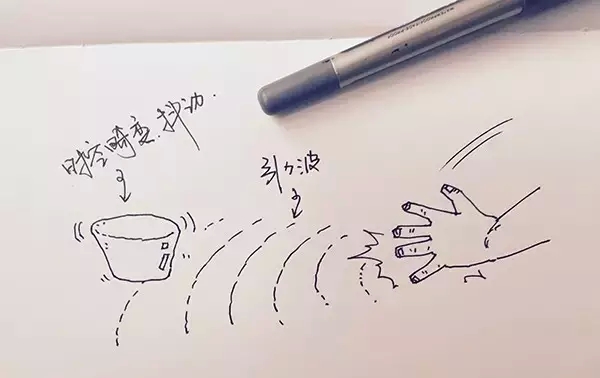 时空畸变.抖动.
引力波